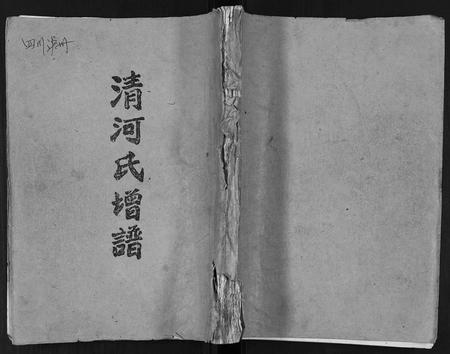 四川泸州
清河氏增譜